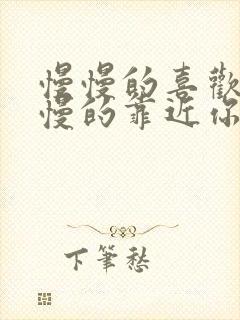 慢慢的喜歡
慢的靠近你
下筆愁